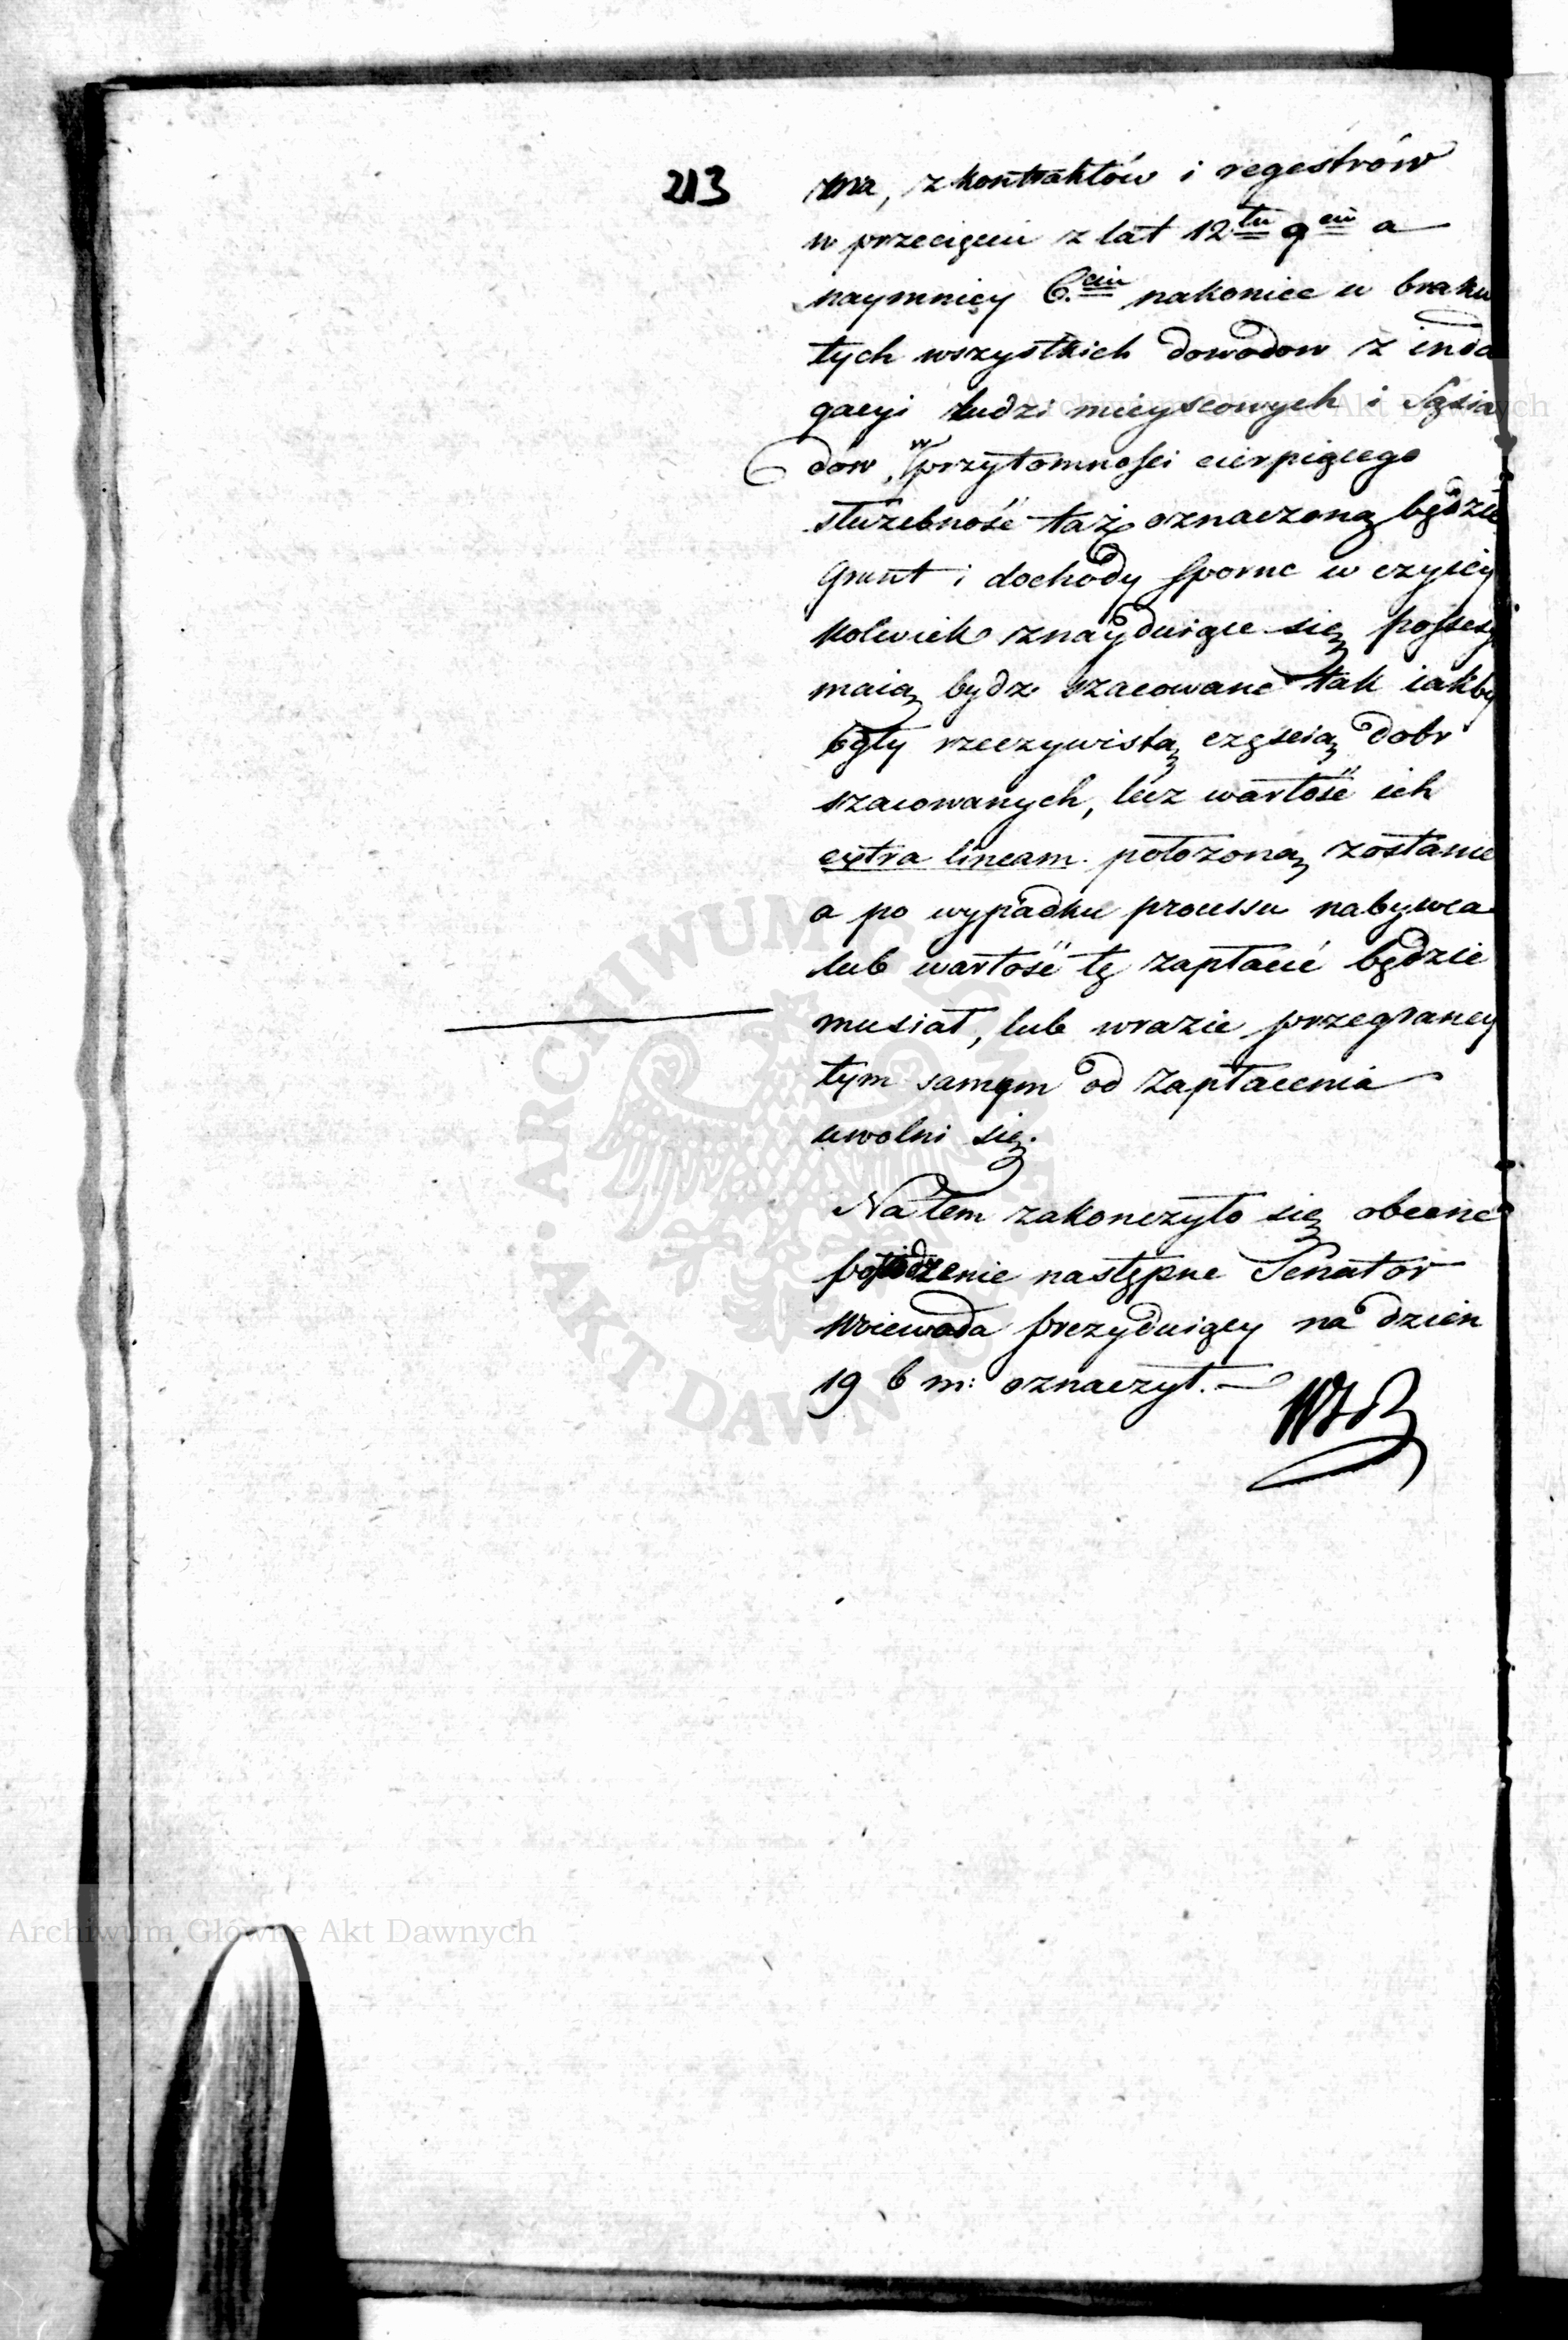 213
zna, z kontraktów i regestrów
w przecięciu z lat 12tu 9ciu a
naymniey 6.ciu nakoniec w braku
tych wszystkich dowodow z inda
gacyi ludzi mieyscowych i Sąsia
dow, w przytomności cierpiącego
służebność taż oznaczoną będzie
Grunt i dochody sporne w czyiey
kolwiek znayduiące się possesyi
maią bydz szacowane tak iakby
były rzeczywistą częścią dobr
szacowanych, lecz wartość ich
extra lineam położoną zostanie
a po wypadku processu nabywca
lub wartość tę zapłacić będzie
musiał, lub wrazie przegraney
tym samym od zapłacenia
uwolni się.
Na tem zakonczyło się obecne
posiedzenie następne Senator
Woiewoda prezyduiący na dzien
19 b m: oznaczył.
Archiwum Główne Akt Dawnych
Archiwum Główne Akt Dawnych
ARCHIWUM GŁÓWNE AKT DAWNYCH